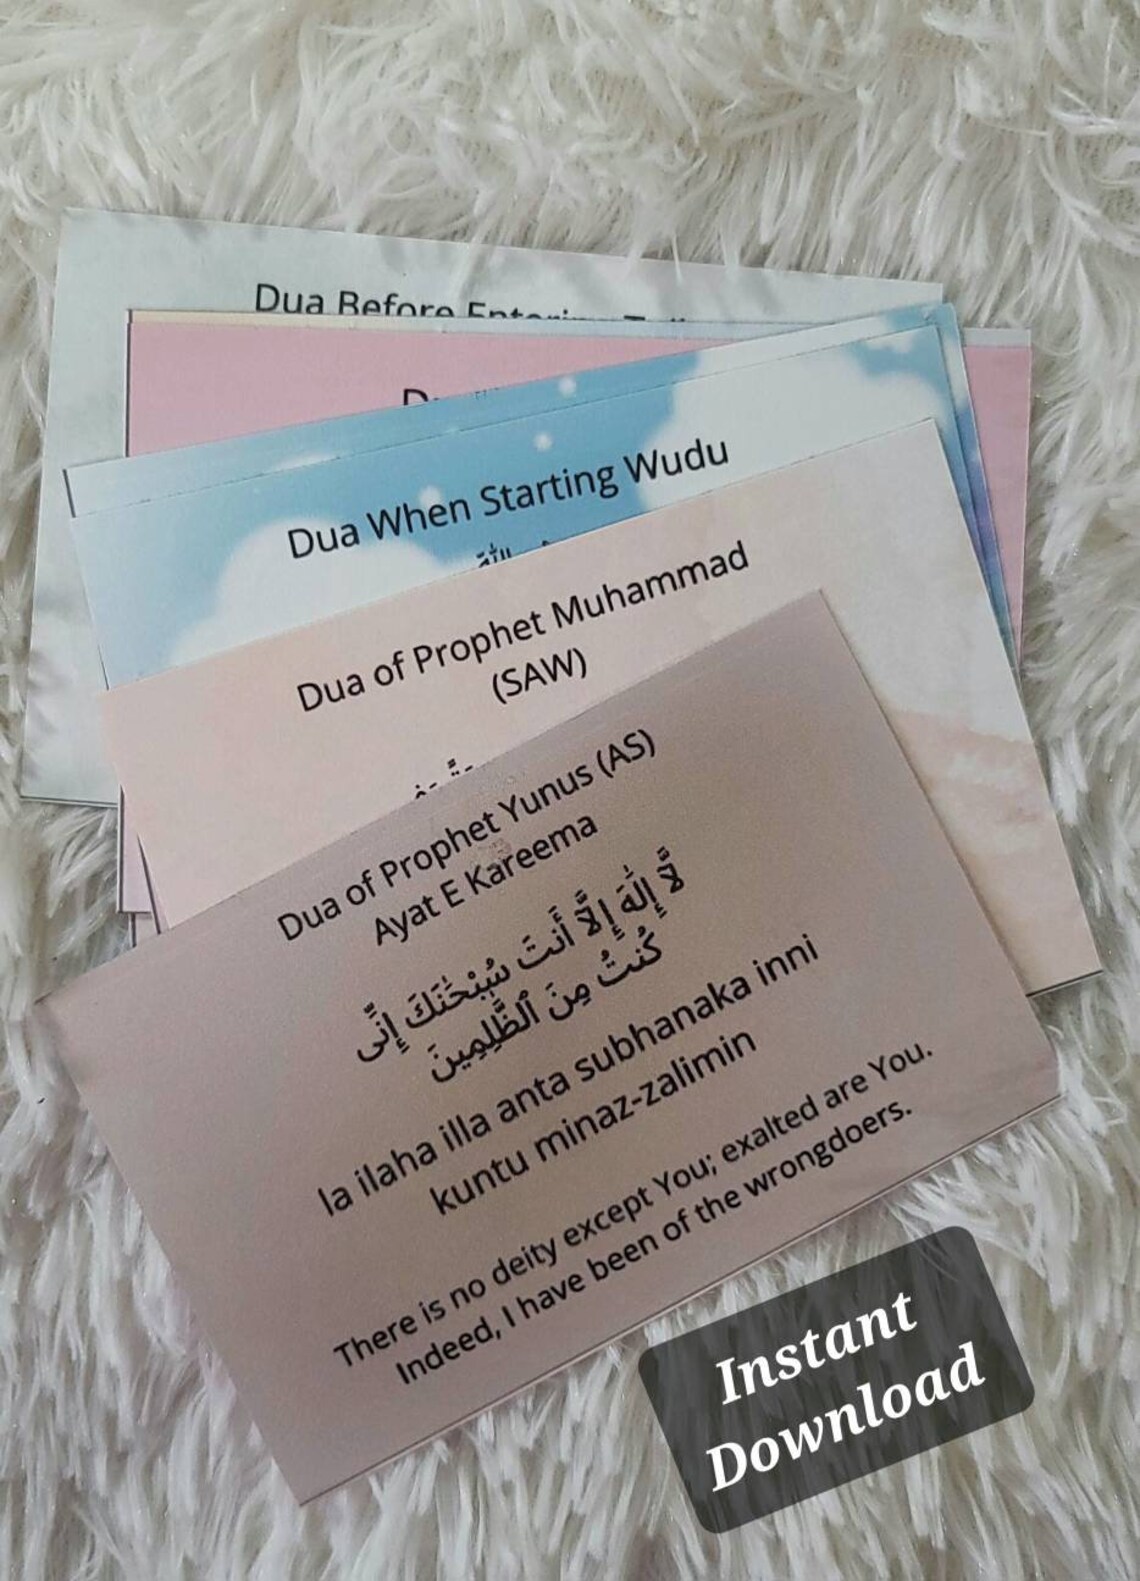 Dua Before Entering
Dua When Starting Wudu
Dua of Prophet Muhammad
(SAW)
Dua of Prophet Yunus (AS)
Ayat E Kareema
لَّا إِلَٰهَ إِلَّا أَنتَ سُبْحَٰنَكَ إِنِّى
كُنتُ مِنَ ٱلظَّٰلِمِينَ
la ilaha illa anta subhanaka inni
kuntu minaz-zalimin
There is no deity except You; exalted are You.
Indeed, I have been of the wrongdoers.
Instant
Download